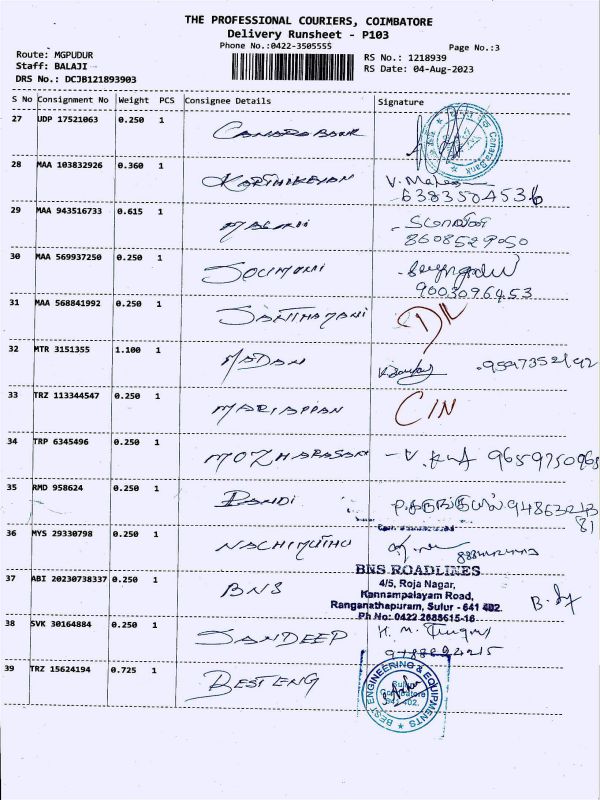 THE PROFESSIONAL COURIERS, COIMBATORE
Delivery Runsheet - P103
Phone No.:0422-3505555
Page No.:3
Route: MGPUDUR
Staff: BALAJI
DRS No.: DCJB121893903
RS No.: 1218939
RS Date: 04-Aug-2023
S No Consignment No Weight PCS Consignee Details Signature
27 UDP 17521063 0.250 1 CANARA BANK
Canara Bank
28 MAA 103832926 0.360 1 KARTHIKEYAN
6383504536
29 MAA 943516733 0.615 1
8608529050
30 MAA 569937250 0.250 1 SOUMUNI
9003096453
31 MAA 568841992 0.250 1 SANTHAMANI
32 MTR 3151355 1.100 1 MADAN
33 TRZ 113344547 0.250 1 MARIAPPAN
34 TRP 6345496 0.250 1 MOZHARASAN
35 RMD 958624 0.250 1 PANDI
36 MYS 29330798 0.250 1 NACHIMUTHU
37 ABI 20230738337 0.250 1 BNS
BNS ROADLINES
4/5, Roja Nagar,
Kannampalayam Road,
Ranganathapuram, Sulur - 641 402.
Ph No: 0422 2685615-16
38 SVK 30164884 0.250 1 SANDEEP
39 TRZ 15624194 0.725 1 BEST ENG
BEST ENGINEERING & EQUIPMENTS
Sulur
Coimbatore
641 402.